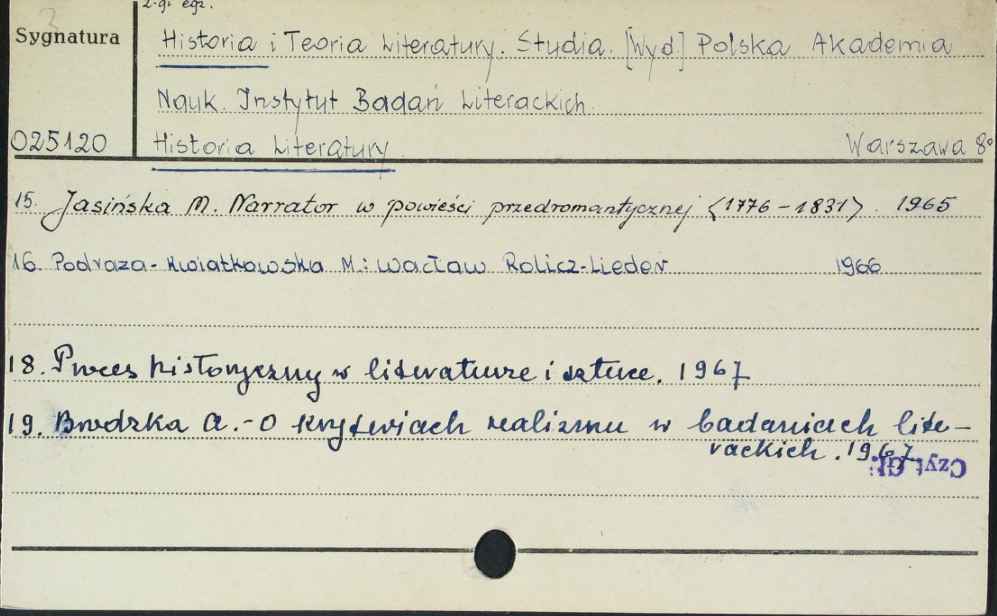 2-gi egz.
Sygnatura
Historia i Teoria Literatury. Studia. [Wyd] Polska Akademia
Nauk. Instytut Badań Literackich.
025120
Historia Literatury
Warszawa 8°
15. Jasińska M. Narrator w powieści przedromantycznej <1776-1831>. 1965
16. Podraza-Kwiatkowska M.: Wacław Rolicz-Lieder 1966
18. Proces historyczny w literaturze i sztuce. 1967
19. Brodzka A. - O kryteriach realizmu w badaniach lite-
rackich. 1967
Czyt. Gł.